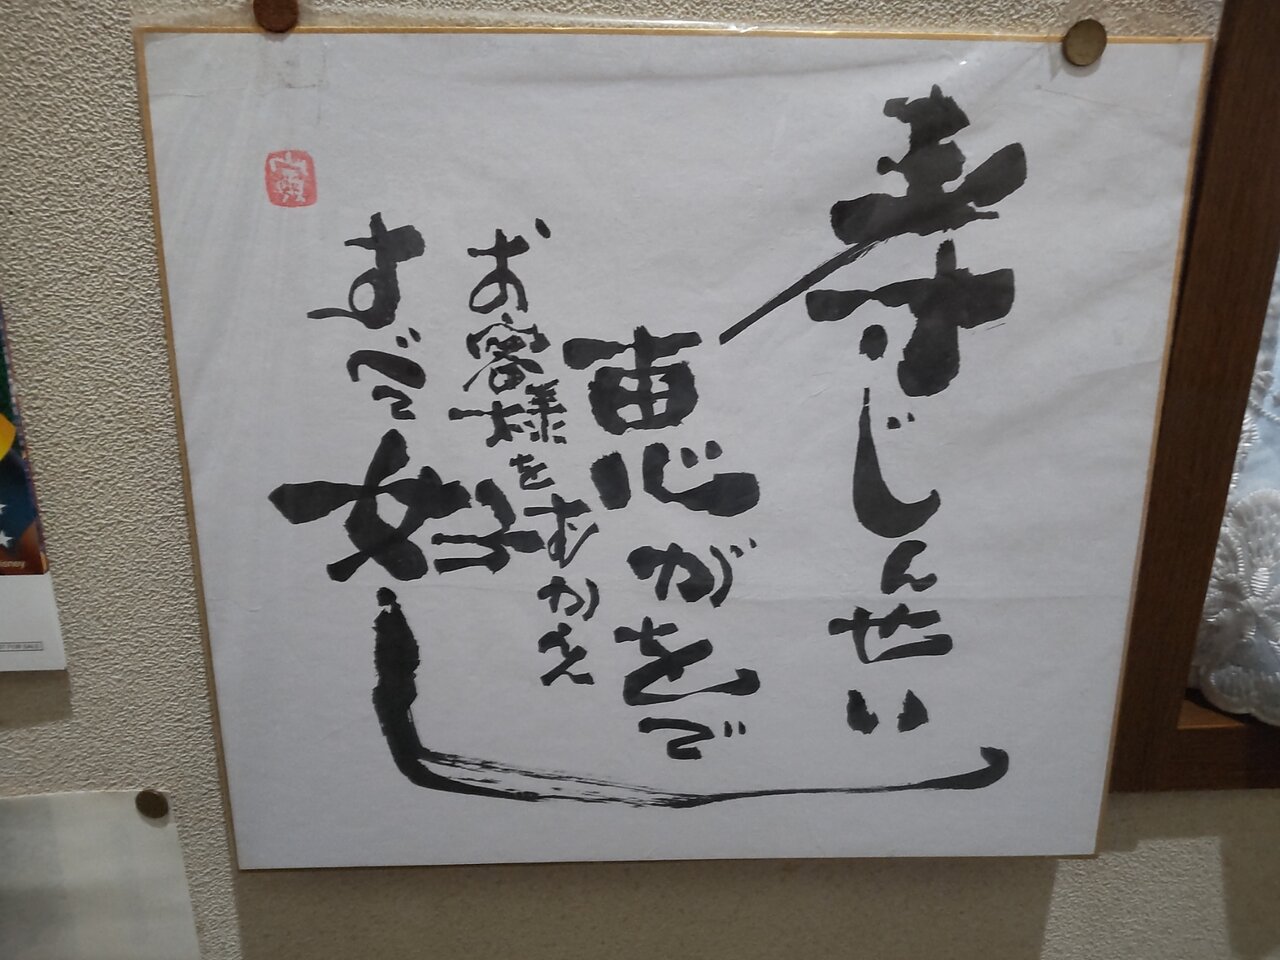 寿じんせい
恵がをで
お客様をむかえ
すべて好し
NOT FOR SALE